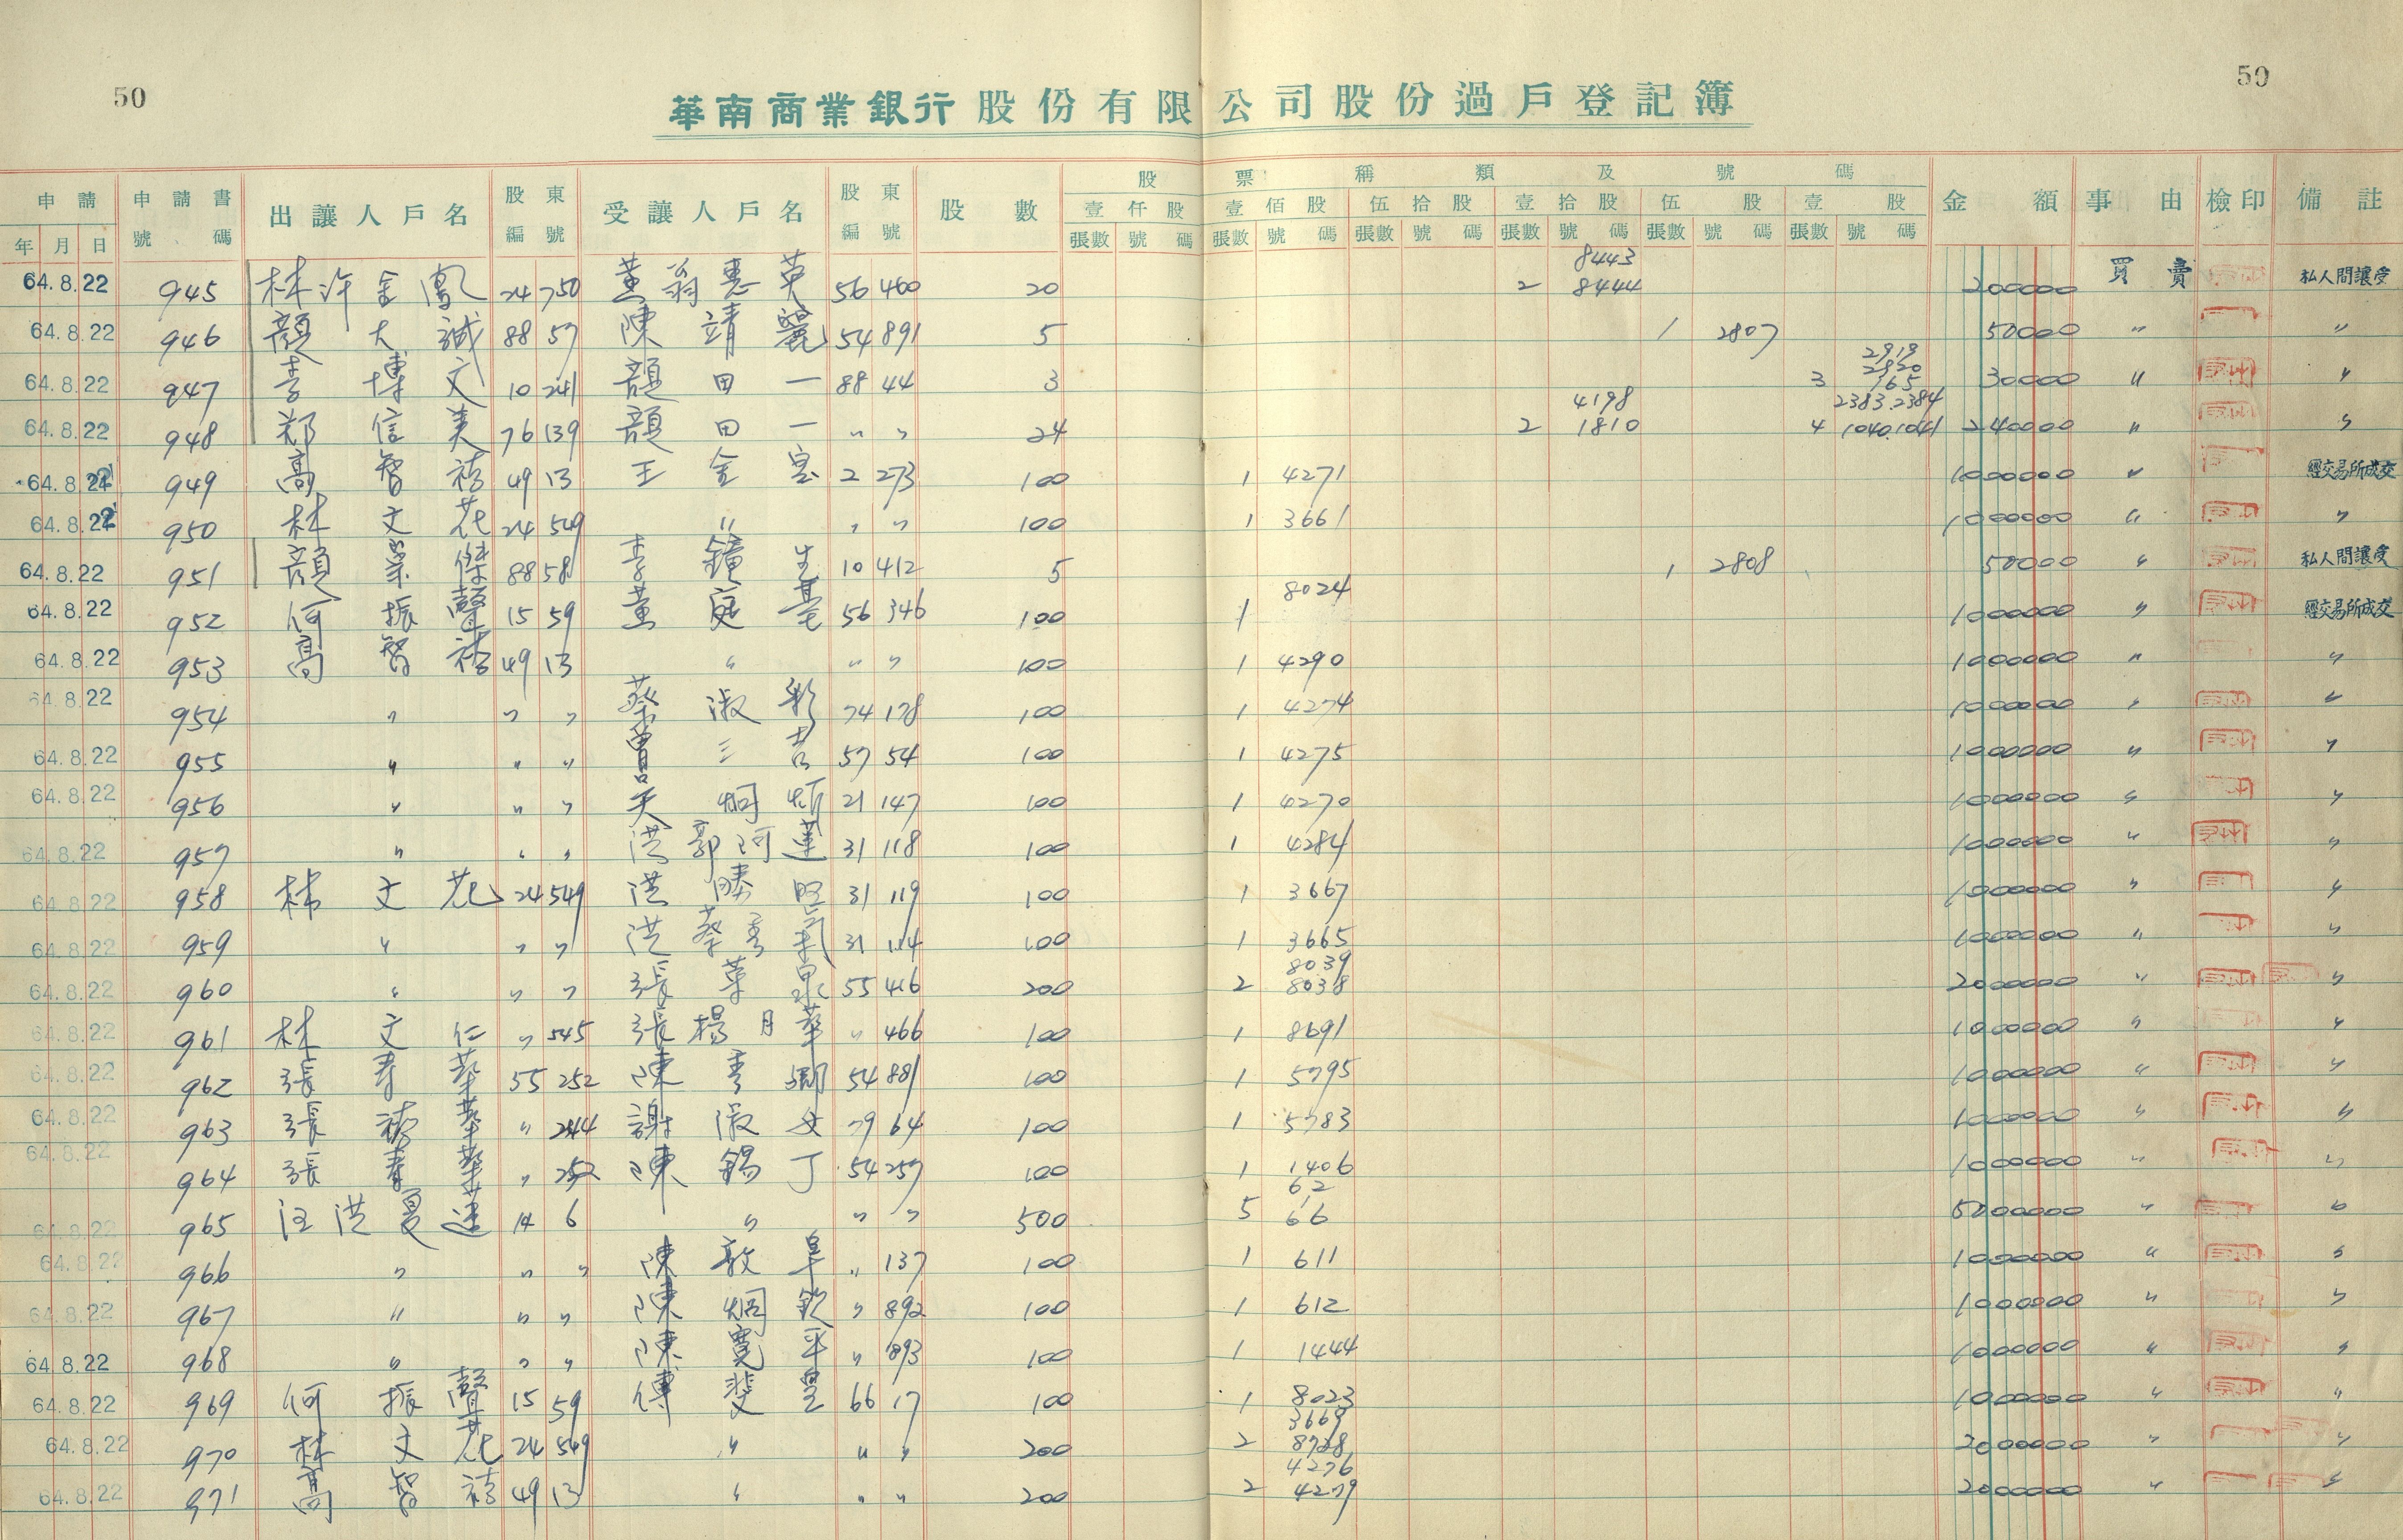 50
50
華南商業銀行股份有限公司股份過戶登記簿
申請 申請書 出讓人戶名 股東 受讓人戶名 股東 股數 股票稱類及號碼 金額 事由 檢印 備註
壹仟股 壹佰股 伍拾股 壹拾股 伍股 壹股
年 月 日 號碼 編號 編號 張數 號碼 張數 號碼 張數 號碼 張數 號碼 張數 號碼 張數 號碼
64.8.22 945 林許金鳳 24 750 黃翁惠英 56 460 20 2 8443 8444 200000 買賣 私人間讓受
64.8.22 946 顏大誠 88 57 陳靖麗 54 891 5 1 2807 50000 〃 〃
64.8.22 947 李博文 10 241 顏田一 88 44 3 3 2919 2920 165 30000 〃 〃
64.8.22 948 鄭信美 76 139 顏田一 〃 〃 24 2 4198 1810 4 2383.2384 1040.1041 240000 〃 〃
64.8.22 949 高智 49 13 王金 2 273 100 1 4271 1000000 〃 經交易所成交
64.8.22 950 林文花 24 549 〃 〃 〃 100 1 3661 1000000 〃 〃
64.8.22 951 顏榮傑 88 58 李鐘生 10 412 5 1 2808 50000 〃 私人間讓受
64.8.22 952 何振聲 15 59 黃庭 56 346 100 1 8024 1000000 〃 經交易所成交
64.8.22 953 高智 49 13 〃 〃 〃 100 1 4290 1000000 〃 〃
64.8.22 954 〃 〃 〃 蔡淑彩 74 178 100 1 4274 1000000 〃 〃
64.8.22 955 〃 〃 〃 曾三 57 54 100 1 4275 1000000 〃 〃
64.8.22 956 〃 〃 〃 21 147 100 1 4270 1000000 〃 〃
64.8.22 957 〃 〃 〃 洪郭阿蓮 31 118 100 1 4284 1000000 〃 〃
64.8.22 958 林文花 24 549 洪勝 31 119 100 1 3667 1000000 〃 〃
64.8.22 959 〃 〃 〃 洪蔡秀 31 114 100 1 3665 1000000 〃 〃
64.8.22 960 〃 〃 〃 張草泉 55 416 200 2 8039 8038 2000000 〃 〃
64.8.22 961 林文仁 〃 545 張楊月華 〃 466 100 1 8691 1000000 〃 〃
64.8.22 962 張春華 55 252 陳秀 54 881 100 1 5795 1000000 〃 〃
64.8.22 963 張華 〃 244 謝淑女 79 64 100 1 5783 1000000 〃 〃
64.8.22 964 張春華 〃 252 陳錫丁 54 257 100 1 1406 1000000 〃 〃
64.8.22 965 汪洪夏蓮 14 6 〃 〃 〃 500 5 62 66 5000000 〃 〃
64.8.22 966 〃 〃 〃 陳敦阜 〃 137 100 1 611 1000000 〃 〃
64.8.22 967 〃 〃 〃 陳炯欽 〃 892 100 1 612 1000000 〃 〃
64.8.22 968 〃 〃 〃 陳寬平 〃 893 100 1 1444 1000000 〃 〃
64.8.22 969 何振聲 15 59 傅斐 66 17 100 1 8023 1000000 〃 〃
64.8.22 970 林文花 24 549 〃 〃 〃 200 2 3669 8728 2000000 〃 〃
64.8.22 971 高智 49 13 〃 〃 〃 200 2 4276 4279 2000000 〃 〃